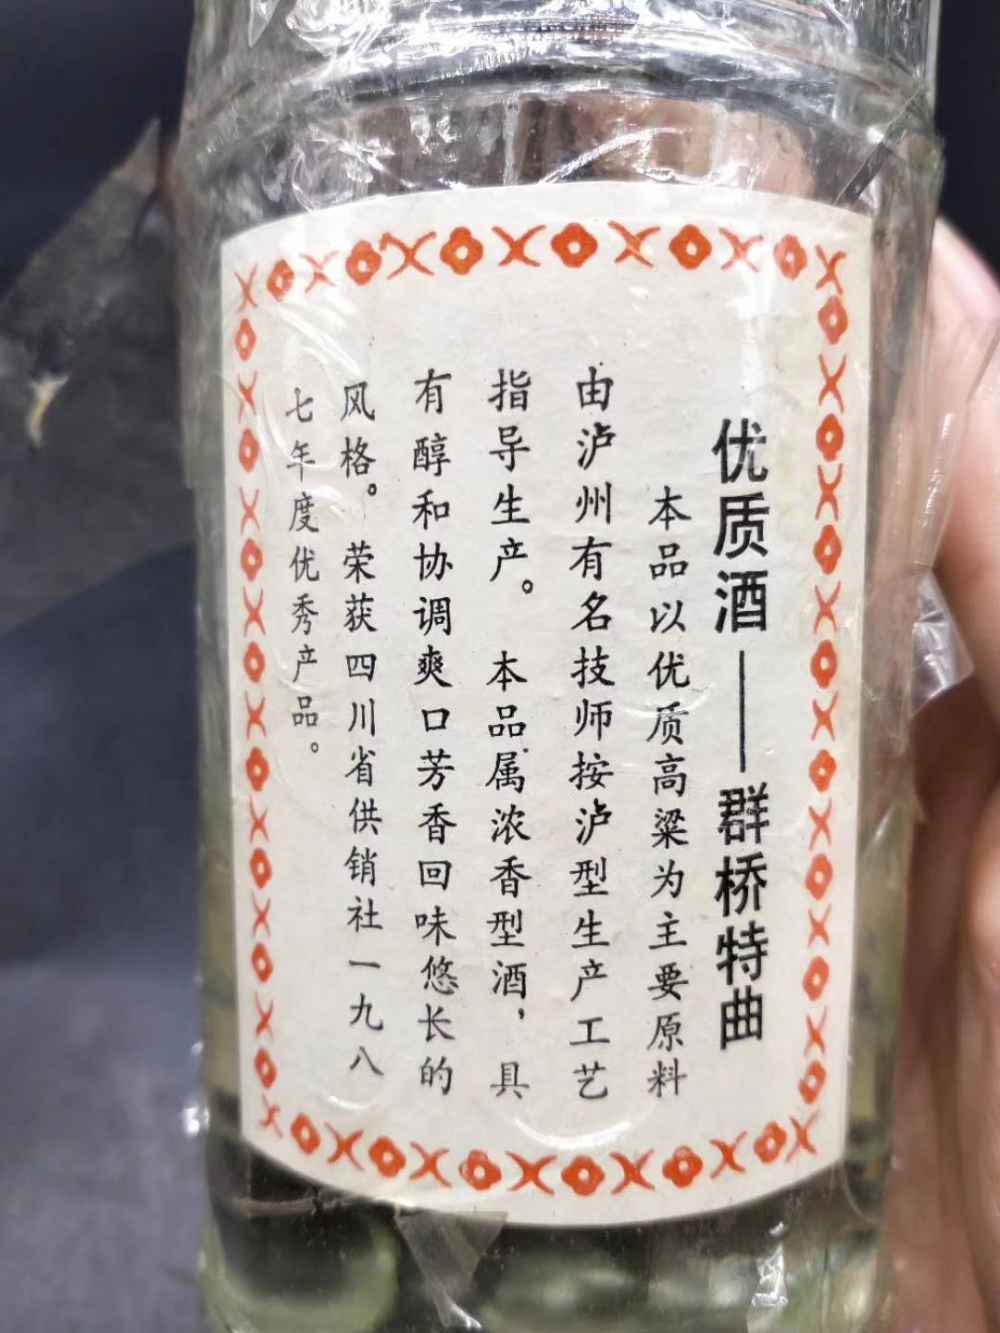 优质酒——群桥特曲
本品以优质高粱为主要原料
由泸州有名技师按泸型生产工艺
指导生产。本品属浓香型酒，具
有醇和协调爽口芳香回味悠长的
风格。荣获四川省供销社一九八
七年度优秀产品。